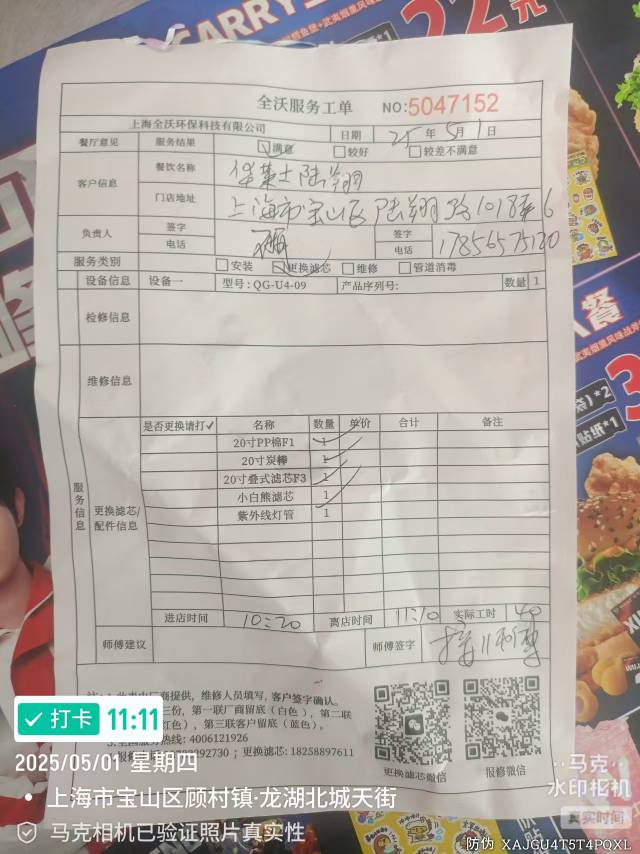 CARRY
22元
全沃服务工单 NO:5047152
上海全沃环保科技有限公司 日期 25年5月1日
餐厅意见 服务结果 ☑满意 □较好 □较差不满意
客户信息 餐饮名称 华莱士陆翔
门店地址 上海市宝山区陆翔路1018弄6
负责人 签字 签字
电话 电话 17856575120
服务类别 □安装 ☑更换滤芯 □维修 □管道消毒
设备信息 设备一 型号:QG-U4-09 产品序列号: 数量 1
检修信息
维修信息
服务信息 更换滤芯/配件信息
是否更换请打✓ 名称 数量 单价 合计 备注
20寸PP棉F1 1
20寸炭棒 1
20寸叠式滤芯F3 1
小白熊滤芯 1
紫外线灯管 1
进店时间 10:20 离店时间 11:10 实际工时 40
师傅建议 师傅签字
提供，维修人员填写，客户签字确认。
三份，第一联厂商留底(白色)，第二联
红色)，第三联客户留底(蓝色)。
3.全国服务热线: 4006121926
2730 ; 更换滤芯: 18258897611
更换滤芯微信 报修微信
套餐
)*2
贴纸*1
打卡 11:11
2025/05/01 星期四
上海市宝山区顾村镇·龙湖北城天街
马克相机已验证照片真实性
马克
水印相机
真实时间
防伪 XAJGU4T5T4PQXL